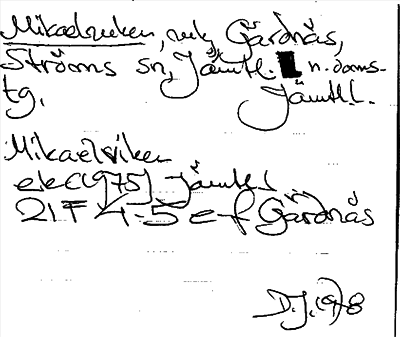 Mikaelviken, , Gärdnäs,
Ströms sn, Jämtl. n. doms-
tg. Jämtl l.
Mikaelviken
ek (1975) Jämtl l
21F 4-5 e-f Gärdnäs
D.J. 1978